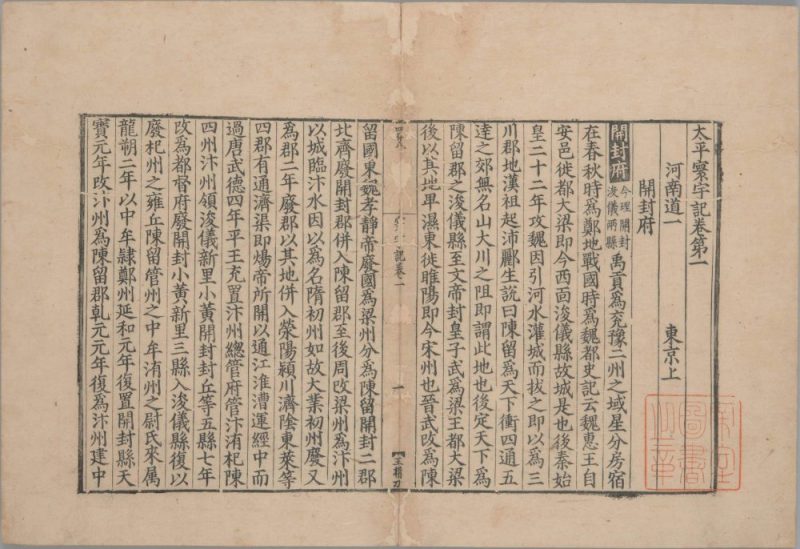 太平寰宇記卷第一
河南道一
開封府 東京上
開封府今理開封浚儀兩縣禹貢爲兖豫二州之域星分房宿
在春秋時爲鄭地戰國時爲魏都史記云魏惠王自
安邑徙都大梁即今西面浚儀縣故城是也後秦始
皇二十二年攻魏因引河水灌城而拔之即以爲三
川郡地漢祖起沛酈生說曰陳留爲天下衝四通五
達之郊無名山大川之阻即謂此地也後定天下爲
陳留郡之浚儀縣至文帝封皇子武爲梁王都大梁
後以其地卑濕東徙睢陽即今宋州也晉武改爲陳
記卷一
一
留國東魏孝靜帝廢國爲梁州分爲陳留開封二郡
北齊廢開封郡併入陳留郡至後周改梁州爲汴州
以城臨汴水因以爲名隋初州如故大業初州廢又
爲郡二年廢郡以其地併入滎陽潁川濟陰東萊等
四郡有通濟渠即煬帝所開以通江淮漕運經中而
過唐武德四年平王充置汴州緫管府管汴洧杞陳
四州汴州領浚儀新里小黃開封封丘等五縣七年
改爲都督府廢開封小黃新里三縣入浚儀縣復以
廢杞州之雍丘陳留管州之中牟洧州之尉氏來属
龍朔二年以中牟隷鄭州延和元年復置開封縣天
寳元年改汴州爲陳留郡乹元元年復爲汴州建中